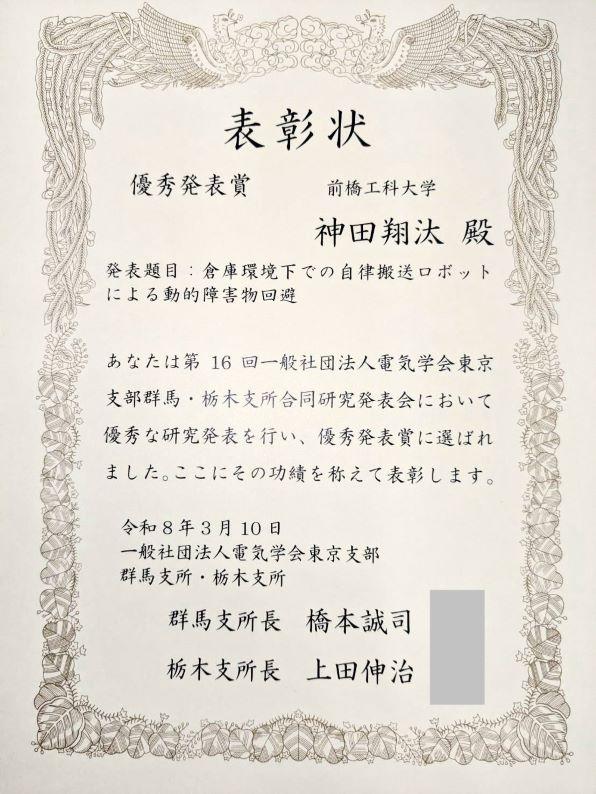 表彰状
優秀発表賞
前橋工科大学
神田翔汰 殿
発表題目：倉庫環境下での自律搬送ロボット
による動的障害物回避
あなたは第 16 回一般社団法人電気学会東京
支部群馬・栃木支所合同研究発表会において
優秀な研究発表を行い、優秀発表賞に選ばれ
ました。ここにその功績を称えて表彰します。
令和8年3月10日
一般社団法人電気学会東京支部
群馬支所・栃木支所
群馬支所長 橋本誠司
栃木支所長 上田伸治